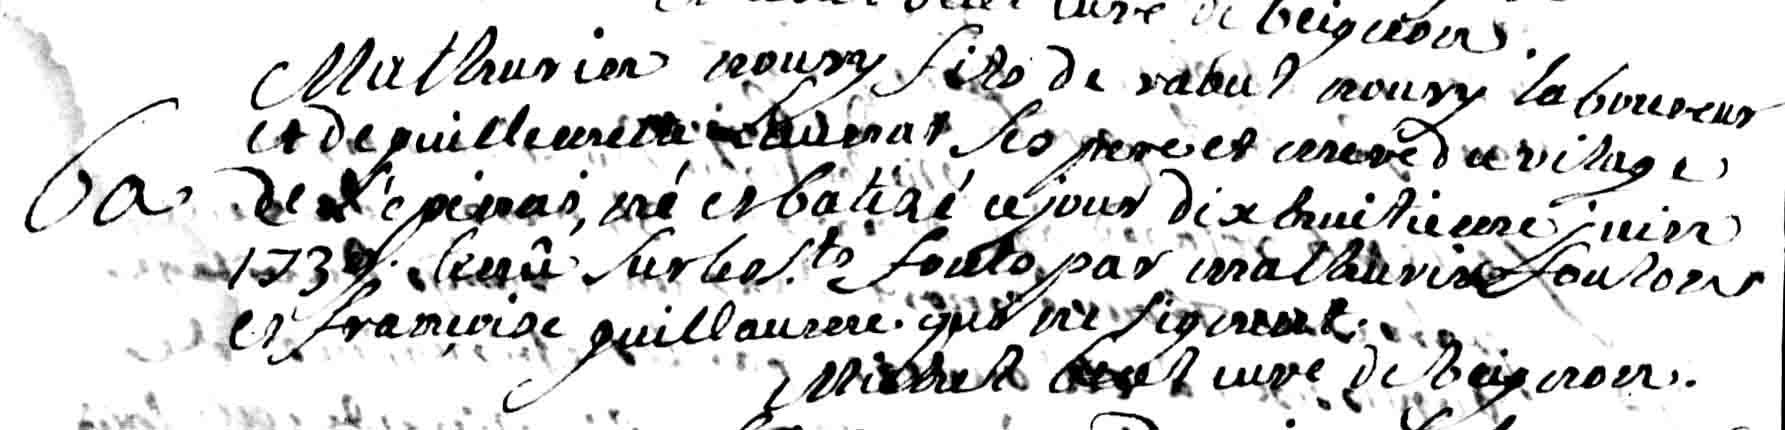 curé de beignon.
Mathurin noury fils de raoul noury laboureur
et de guillemette ses pere et mere du vilage
6a de L'épinai, né et batisé ce jour dixhuitieme juin
173 tenu sur les sts fonts par mathurin foulon
et françoise guillaume qui ne signent.
Michel curé de beignon.